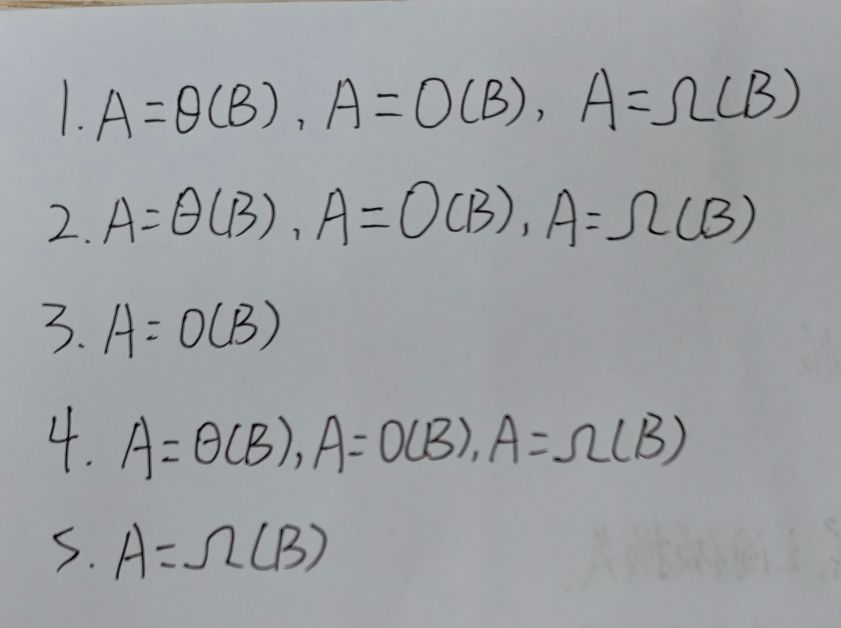 1. A=θ(B), A=O(B), A=Ω(B)
2. A=θ(B), A=O(B), A=Ω(B)
3. A=O(B)
4. A=θ(B), A=O(B), A=Ω(B)
5. A=Ω(B)